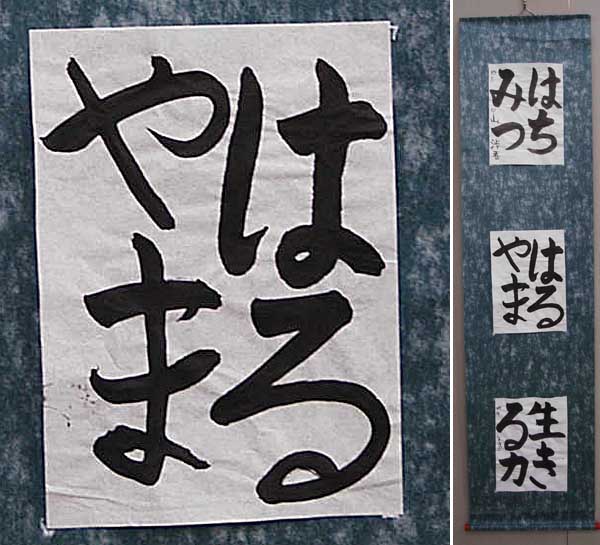 はる
やま
はち
みつ
はる
やま
生き
る力